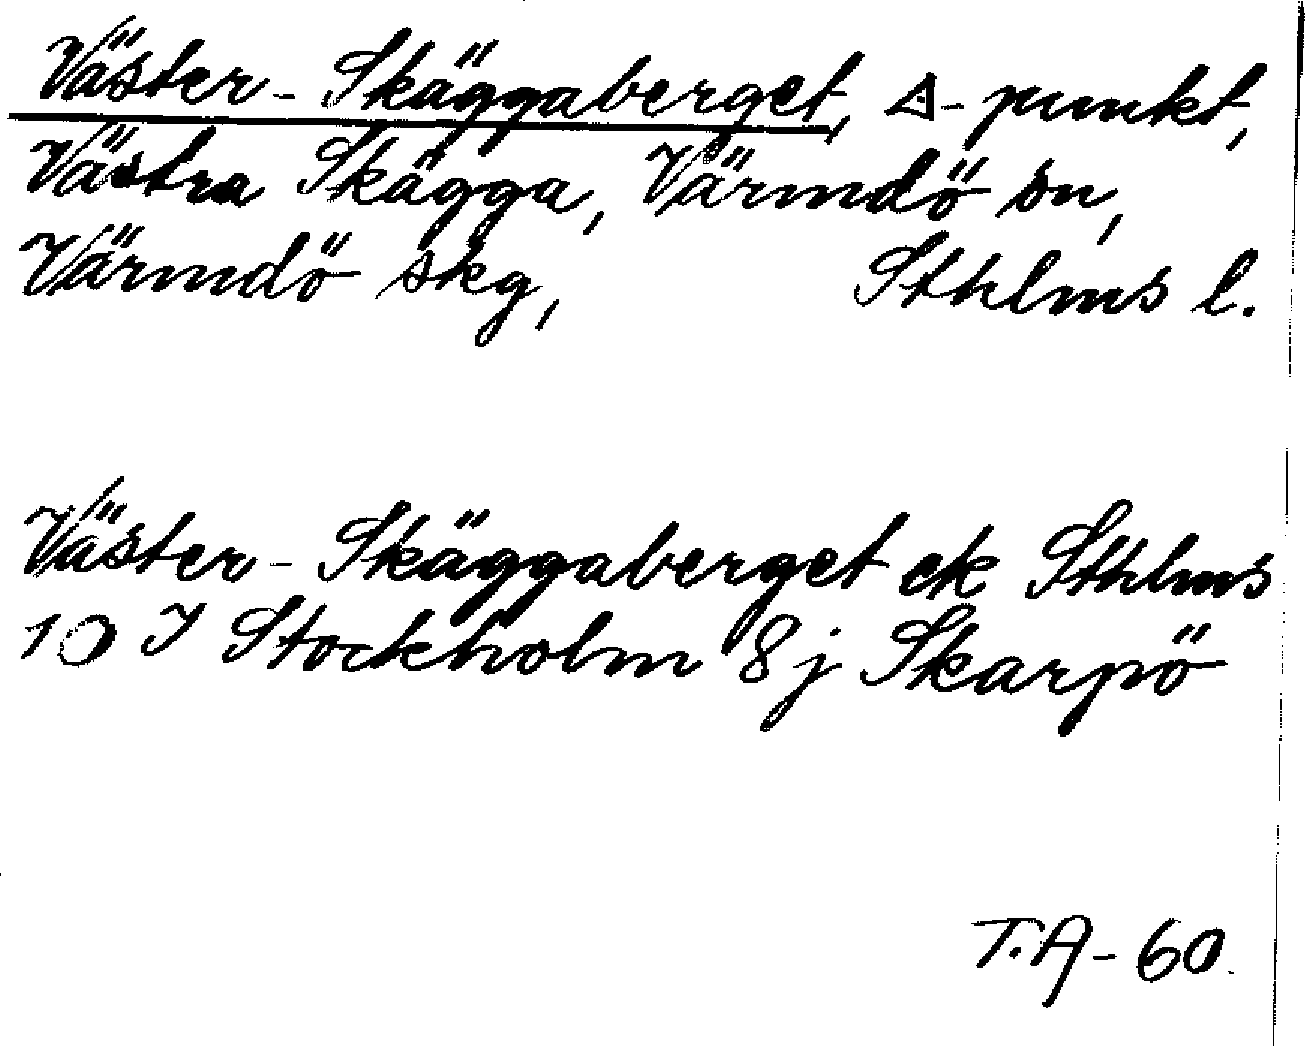 Väster-Skäggaberget, △-punkt,
Västra Skägga, Värmdö sn,
Värmdö skg, Sthlms l.
Väster-Skäggaberget ek Sthlms
10 I Stockholm 8j Skarpö
T.A-60